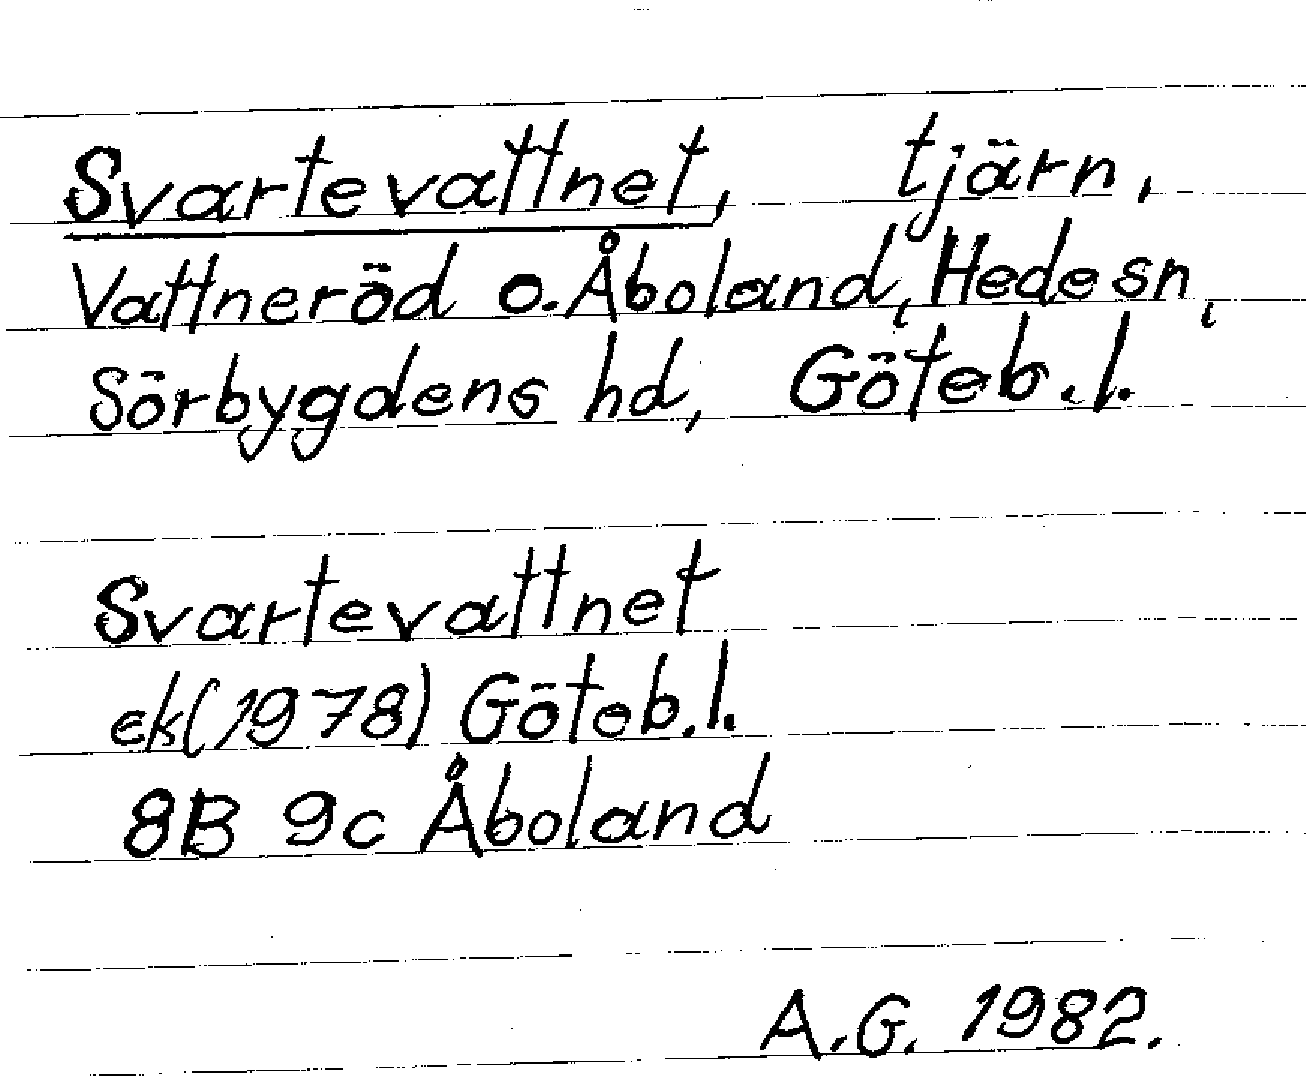 Svartevattnet, tjärn,
Vattneröd o. Åboland, Hede sn,
Sörbygdens hd, Göteb. l.
Svartevattnet
ek (1978) Göteb. l.
8B 9c Åboland
A.G. 1982.